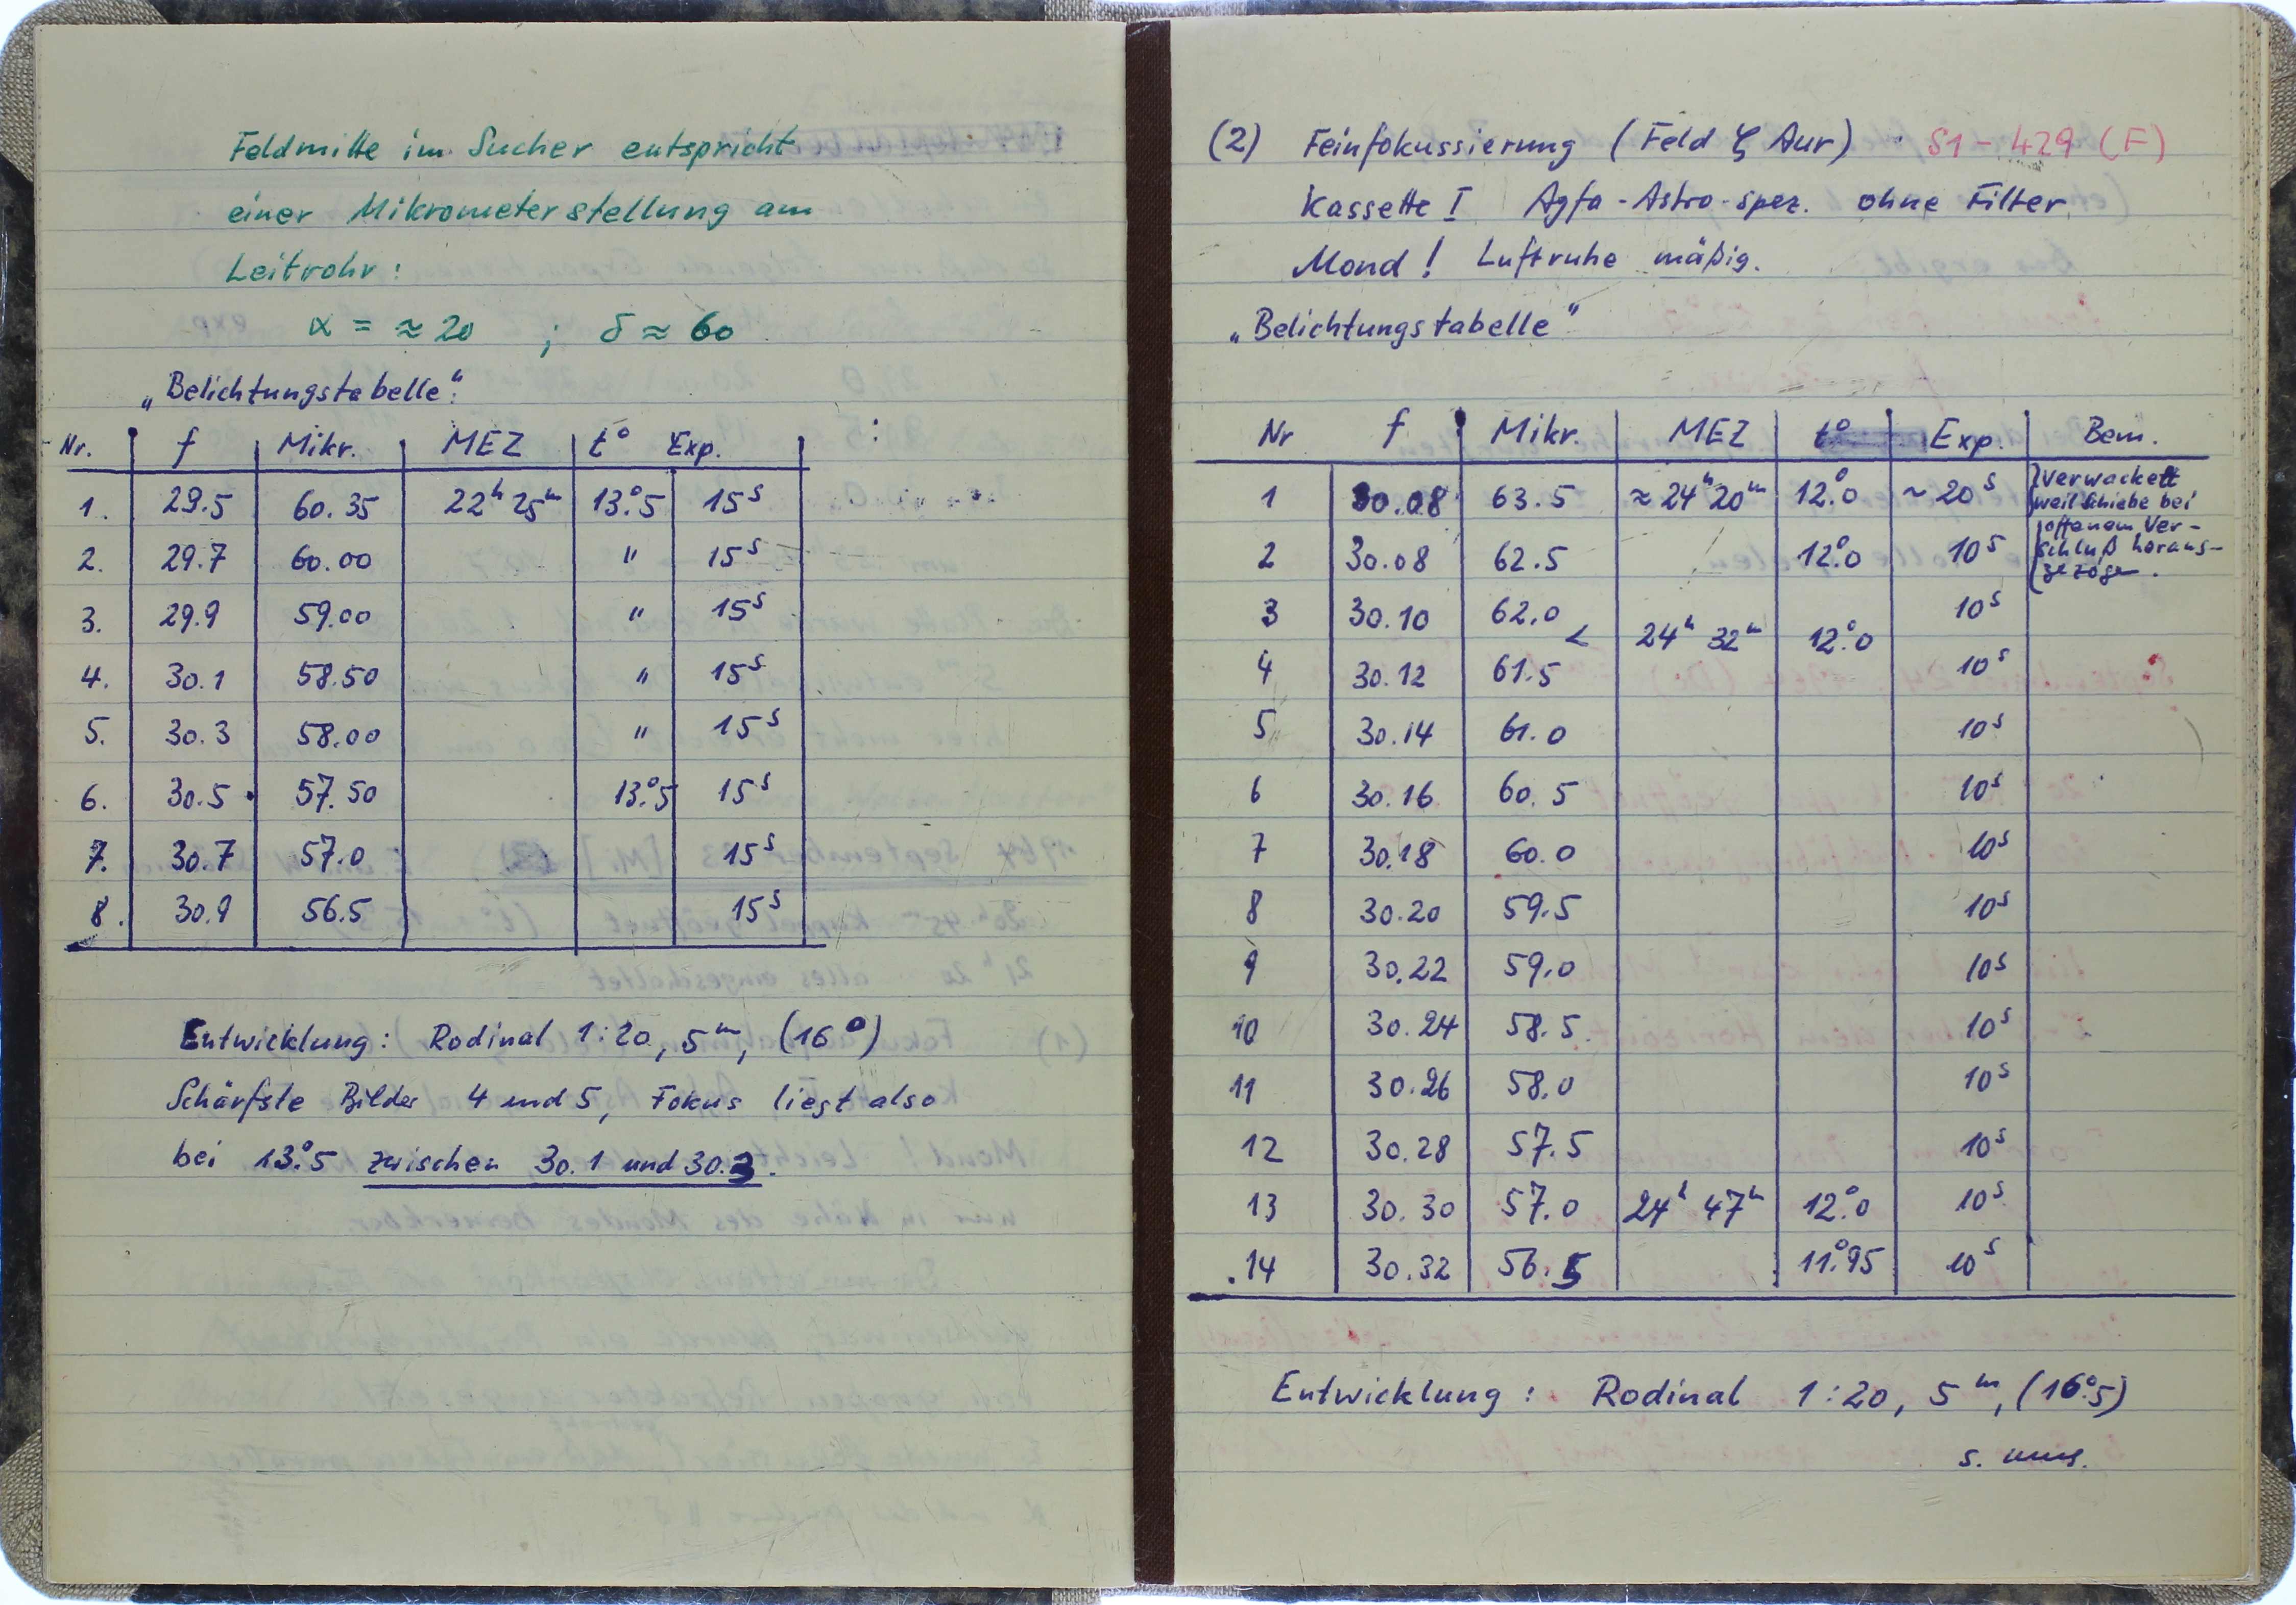 Feldmitte im Sucher entspricht
einer Mikrometerstellung am
Leitrohr:
α = ≈ 20 ; δ ≈ 60
„Belichtungstabelle":
Nr. f Mikr. MEZ t° Exp.
1. 29.5 60.35 22ʰ 25ᵐ 13°.5 15ˢ
2. 29.7 60.00 " 15ˢ
3. 29.9 59.00 " 15ˢ
4. 30.1 58.50 " 15ˢ
5. 30.3 58.00 " 15ˢ
6. 30.5 57.50 13°.5 15ˢ
7. 30.7 57.0 15ˢ
8. 30.9 56.5 15ˢ
Entwicklung: Rodinal 1:20, 5ᵐ, (16°)
Schärfste Bilder 4 und 5, Fokus liegt also
bei 13°.5 zwischen 30.1 und 30.3.
(2) Feinfokussierung (Feld ζ Aur) S1-429 (F)
Kassette I Agfa-Astro-spez. ohne Filter
Mond! Luftruhe mäßig.
„Belichtungstabelle"
Nr f Mikr. MEZ t° Exp. Bem.
1 30.08 63.5 ≈ 24ʰ 20ᵐ 12°.0 ~ 20ˢ verwackelt
weil Schiebe bei
offenem Ver-
2 30.08 62.5 12°.0 10ˢ schluß heraus-
gezogen.
3 30.10 62.0 10ˢ
< 24ʰ 32ᵐ 12°.0
4 30.12 61.5 10ˢ
5 30.14 61.0 10ˢ
6 30.16 60.5 10ˢ
7 30.18 60.0 10ˢ
8 30.20 59.5 10ˢ
9 30.22 59.0 10ˢ
10 30.24 58.5 10ˢ
11 30.26 58.0 10ˢ
12 30.28 57.5 10ˢ
13 30.30 57.0 24ʰ 47ᵐ 12°.0 10ˢ
14 30.32 56.5 11°.95 10ˢ
Entwicklung: Rodinal 1:20, 5ᵐ, (16°.5)
s. ums.